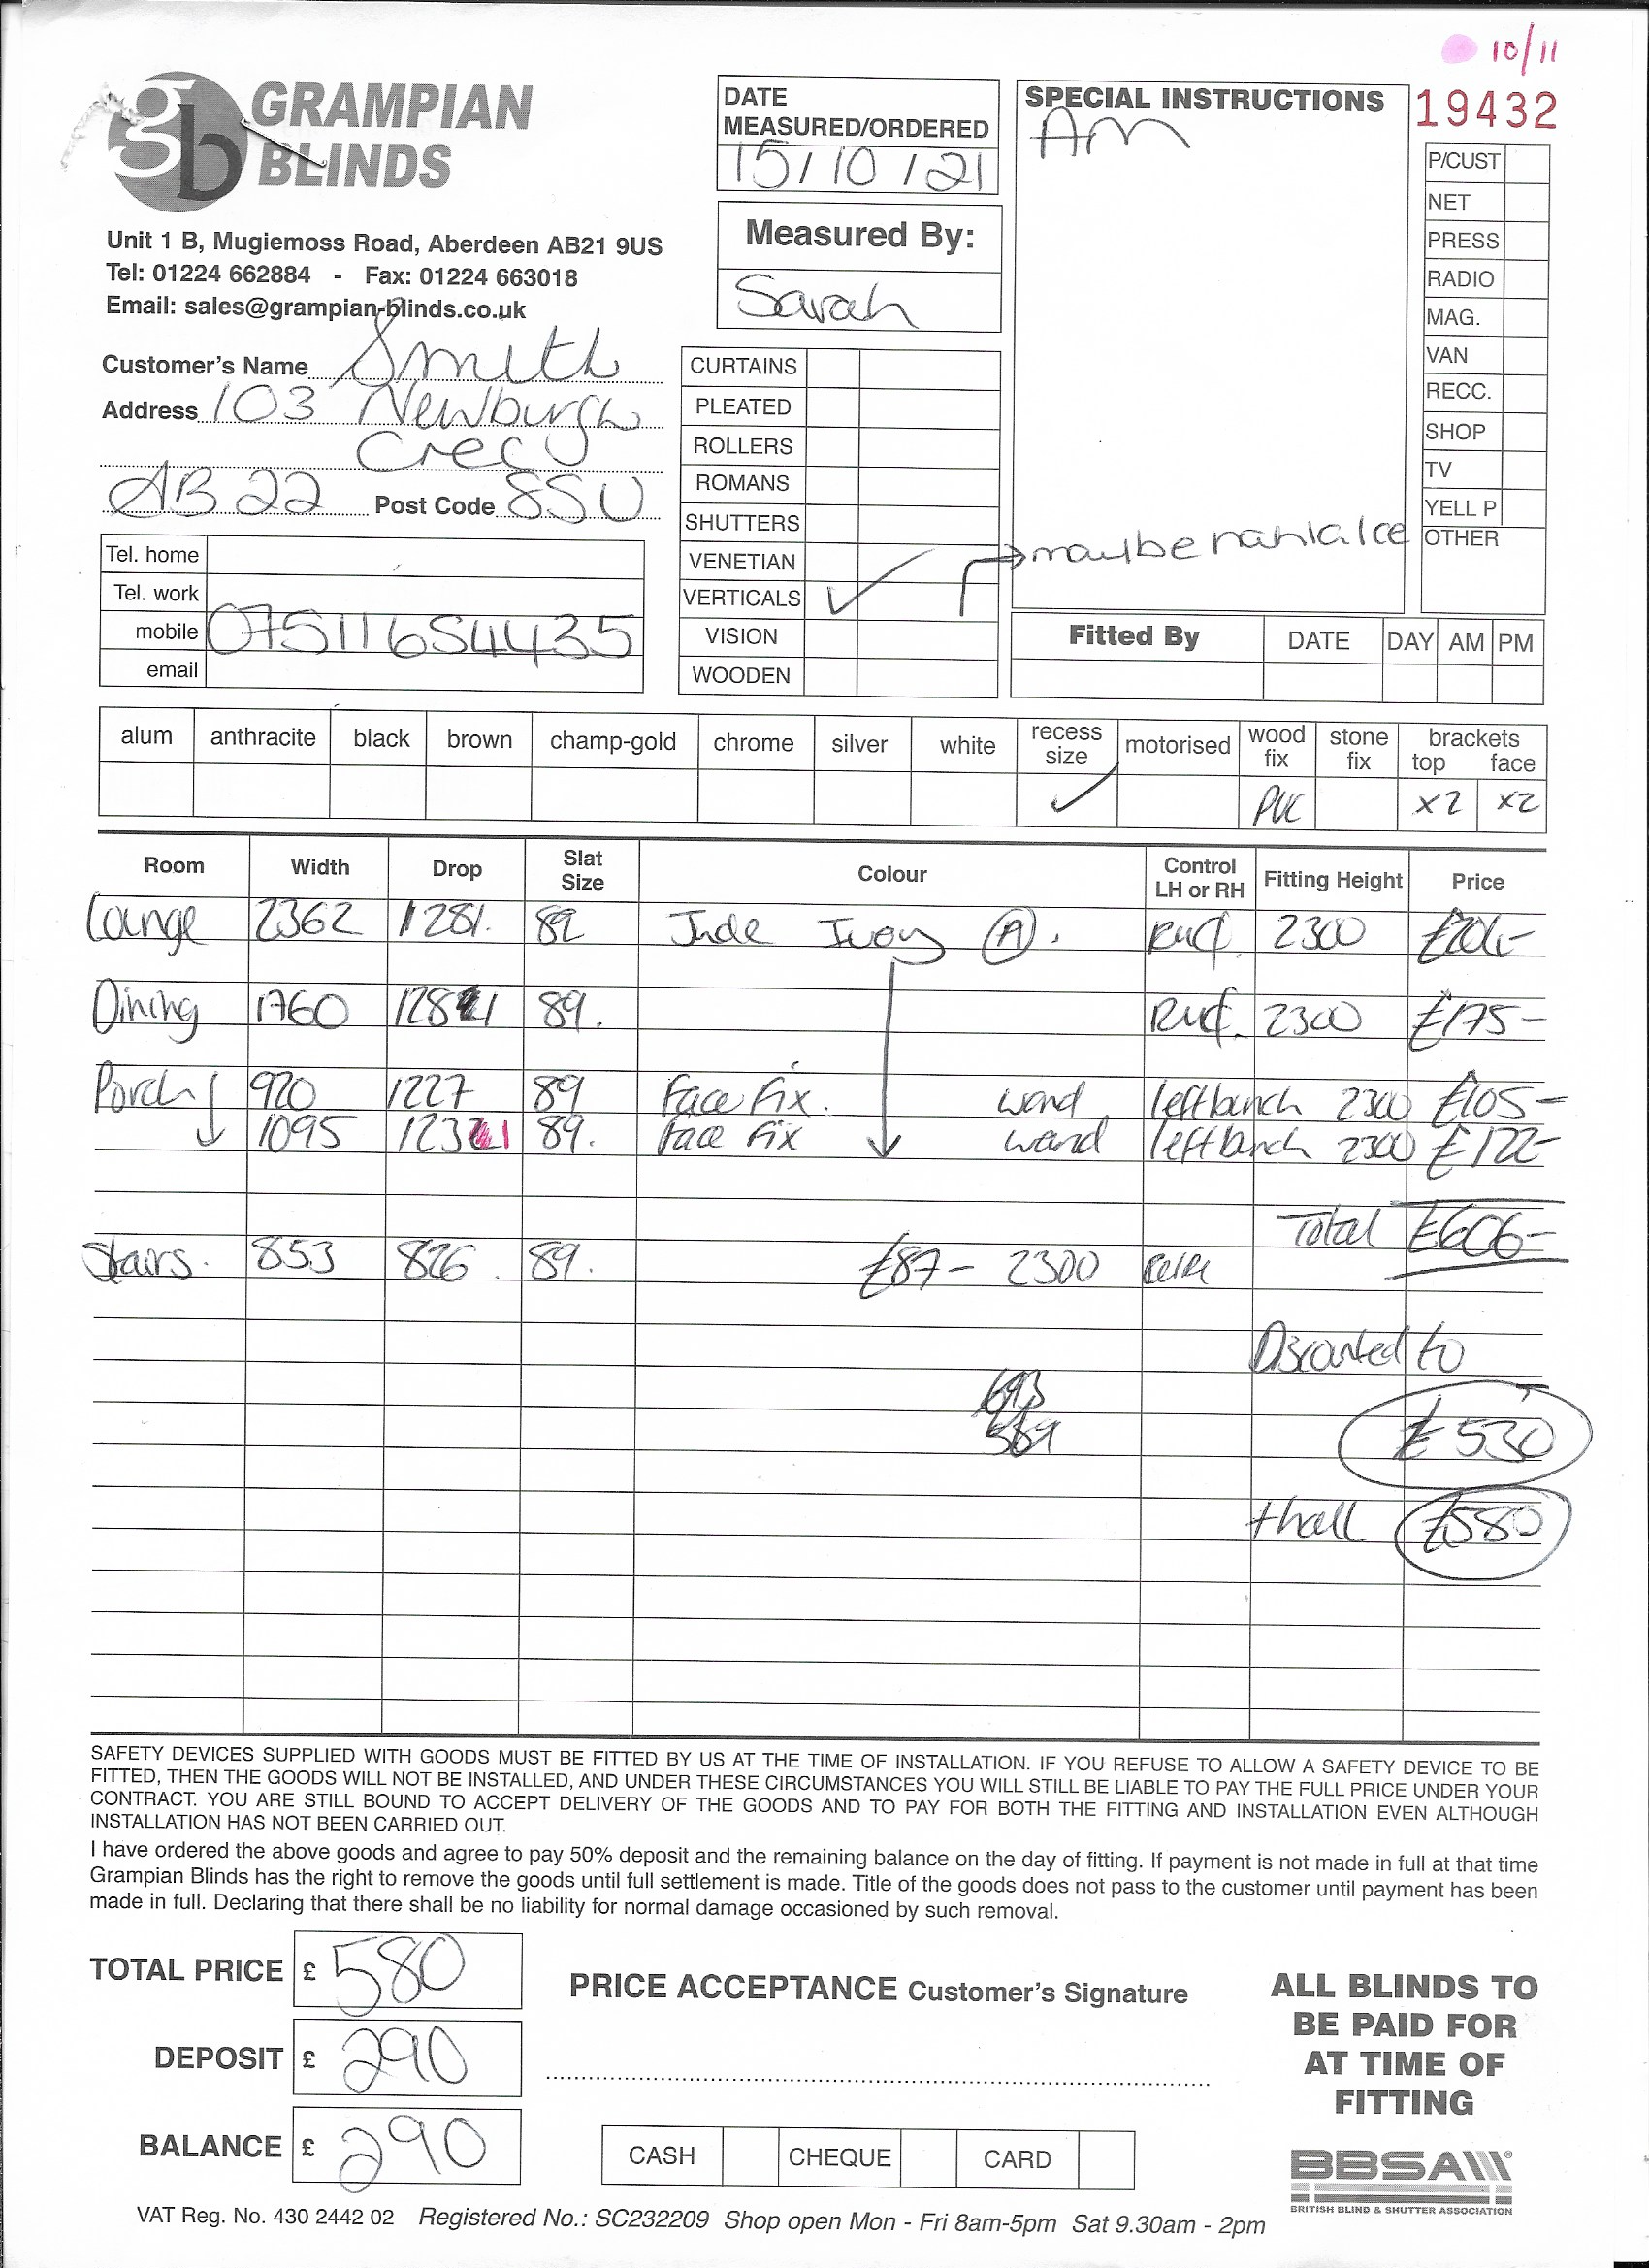 10/11
GRAMPIAN
BLINDS
Unit 1 B, Mugiemoss Road, Aberdeen AB21 9US
Tel: 01224 662884 - Fax: 01224 663018
Email: sales@grampian-blinds.co.uk
Customer's Name Smith
Address 103 Newburgh
Cres
AB22 Post Code 8SU
Tel. home
Tel. work
mobile 07511654435
email
DATE
MEASURED/ORDERED
15/10/21
Measured By:
Sarah
CURTAINS
PLEATED
ROLLERS
ROMANS
SHUTTERS
VENETIAN
VERTICALS ✓
VISION
WOODEN
SPECIAL INSTRUCTIONS
AM
maybe
19432
P/CUST
NET
PRESS
RADIO
MAG.
VAN
RECC.
SHOP
TV
YELL P
OTHER
Fitted By DATE DAY AM PM
alum anthracite black brown champ-gold chrome silver white recess size motorised wood fix stone fix brackets top face
✓ PVC x2 x2
Room Width Drop Slat Size Colour Control LH or RH Fitting Height Price
Lounge 2362 1281. 89 Jade Ivory (A). 2300 £204-
Dining 1760 1281 89. 2300 £175-
Porch 920 1227 89 Face Fix. wand left bunch 2300 £105-
1095 1231 89. Face Fix wand left bunch 2300 £122-
Total £606-
Stairs. 853 826. 89. £87- 2300
Discounted to
693
£530
+hall £580
SAFETY DEVICES SUPPLIED WITH GOODS MUST BE FITTED BY US AT THE TIME OF INSTALLATION. IF YOU REFUSE TO ALLOW A SAFETY DEVICE TO BE
FITTED, THEN THE GOODS WILL NOT BE INSTALLED, AND UNDER THESE CIRCUMSTANCES YOU WILL STILL BE LIABLE TO PAY THE FULL PRICE UNDER YOUR
CONTRACT. YOU ARE STILL BOUND TO ACCEPT DELIVERY OF THE GOODS AND TO PAY FOR BOTH THE FITTING AND INSTALLATION EVEN ALTHOUGH
INSTALLATION HAS NOT BEEN CARRIED OUT.
I have ordered the above goods and agree to pay 50% deposit and the remaining balance on the day of fitting. If payment is not made in full at that time
Grampian Blinds has the right to remove the goods until full settlement is made. Title of the goods does not pass to the customer until payment has been
made in full. Declaring that there shall be no liability for normal damage occasioned by such removal.
TOTAL PRICE £ 580
DEPOSIT £ 290
BALANCE £ 290
PRICE ACCEPTANCE Customer's Signature
CASH CHEQUE CARD
ALL BLINDS TO
BE PAID FOR
AT TIME OF
FITTING
BBSA
BRITISH BLIND & SHUTTER ASSOCIATION
VAT Reg. No. 430 2442 02 Registered No.: SC232209 Shop open Mon - Fri 8am-5pm Sat 9.30am - 2pm